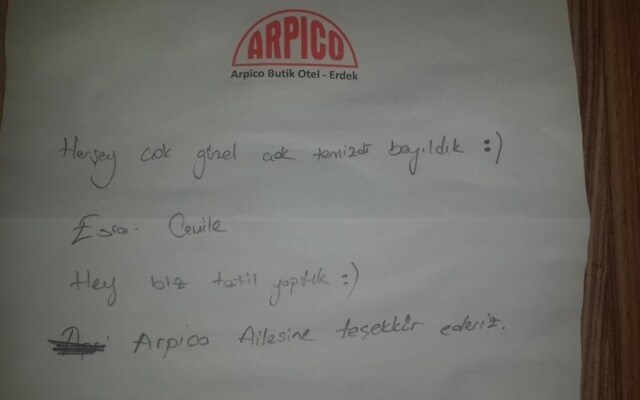 ARPICO
Arpico Butik Otel - Erdek
Herşey çok güzel çok temizdi bayıldık :)
Esra. Cemile
Hey biz tatil yaptık :)
Arpico Ailesine teşekkür ederiz.